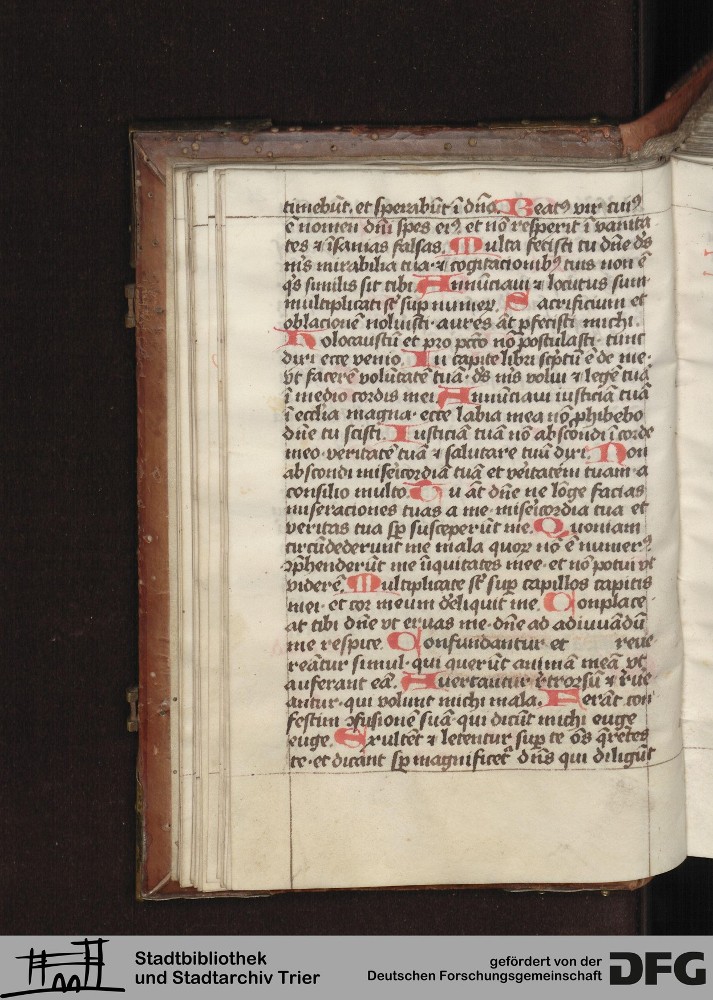 timebūt. et sperabūt ī dño. Beatꝰ vir cuiꝰ
ē nomen dñi spes eiꝰ. et nō respexit ī vanita
tes ⁊ īsanias falsas. Multa fecisti tu dñe ds̄
ms̄ mirabilia tua· ⁊ cogitacionibꝰ tuis non ē
qs̄ similis sit tibi. Annūciaui ⁊ locutus sum
multiplicati sт̄ sup numerꝝ. Sacrificium et
oblacionē noluisti· aures āt pfecisti michi.
Holocaustū et pro pctō nō postulasti· tunc
dixi ecce venio. In capite libri scptū ē de me·
vt facerē volūtatē tuā· ds̄ ms̄ volui ⁊ legē tuā
ī medio cordis mei. Annūciaui iusticiā tuā
ī ecclīa magna· ecce labia mea nō ꝓhibebo
dñe tu scisti. Iusticiā tuā nō abscōdi ī corde
meo· veritatē tuā ⁊ salutare tuū dixi. Non
abscondi misericordiā tuā et veītatem tuam a
consilio multo. Tu āt dñe ne lōge facias
miseraciones tuas a me· misēicordia tua et
veritas tua sp̄ susceperūt me. Quoniam
circūdederunt me mala quoꝝ nō ē numerꝰ
ꝯphenderūt me īiquitates mee· et nō potui vt
viderē. Multiplicate st̄ sup capillos capitis
mei· et cor meum dēliquit me. Conplace
at tibi dñe vt eruas me· dñe ad adiuuādū
me respice. Confundantur et reue
reātur simul· qui querūt animā meā vt
auferant eā. Auertantur rētrorsū ⁊ rēue
antur· qui volunt michi mala. Ferāt con
festim ꝯfusionē suā· qui dicūt michi euge
euge. Exultēt ⁊ letentur sup te ōs qrētes
te· et dicānt sp̄ magnificet᷑ dñs qui diligūt
Stadtbibliothek
und Stadtarchiv Trier
gefördert von der
Deutschen Forschungsgemeinschaft
DFG